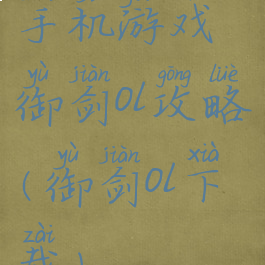 手机游戏
yù jiàn gōng lüè
御剑OL攻略
yù jiàn xià
(御剑OL下
zài
载)